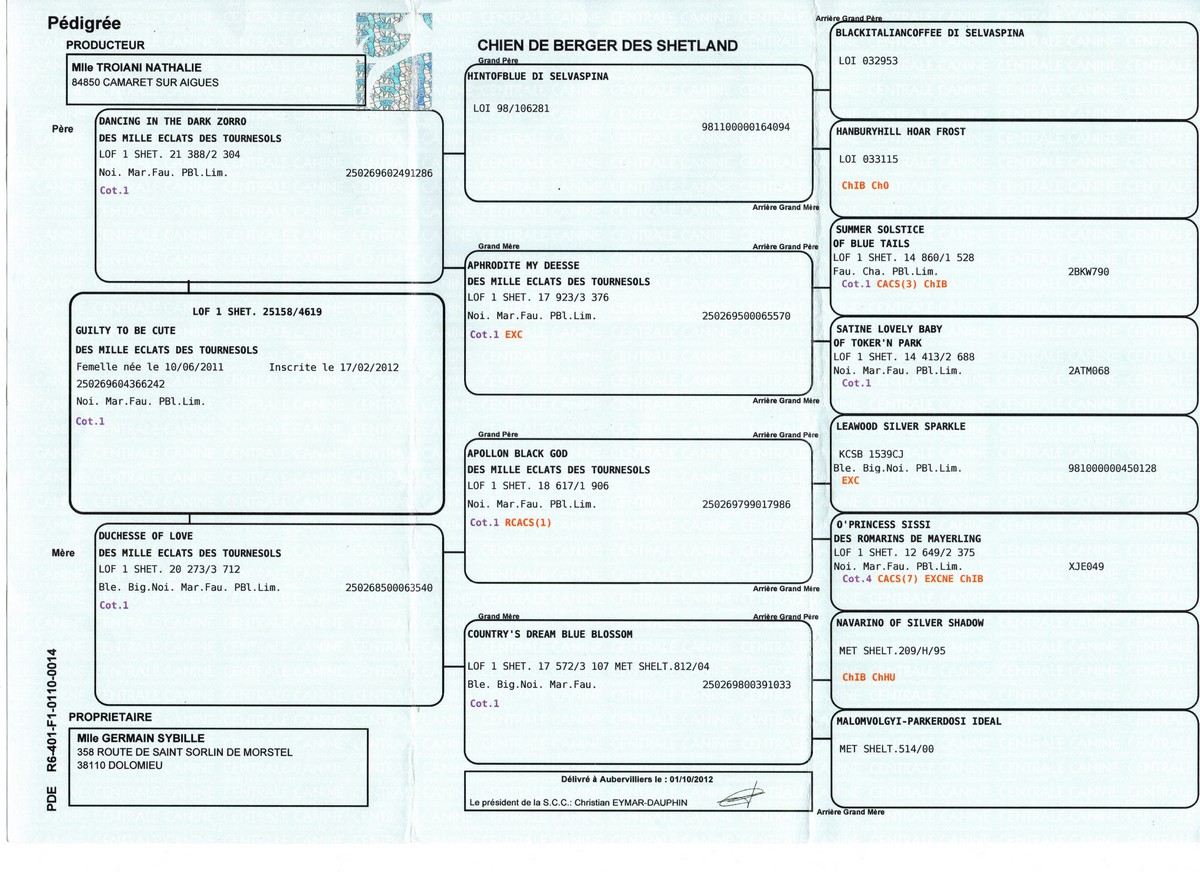 Pédigrée
PRODUCTEUR
Mlle TROIANI NATHALIE
84850 CAMARET SUR AIGUES
CHIEN DE BERGER DES SHETLAND
Père
DANCING IN THE DARK ZORRO
DES MILLE ECLATS DES TOURNESOLS
LOF 1 SHET. 21 388/2 304
Noi. Mar.Fau. PBl.Lim. 250269602491286
Cot.1
LOF 1 SHET. 25158/4619
GUILTY TO BE CUTE
DES MILLE ECLATS DES TOURNESOLS
Femelle née le 10/06/2011 Inscrite le 17/02/2012
250269604366242
Noi. Mar.Fau. PBl.Lim.
Cot.1
Mère
DUCHESSE OF LOVE
DES MILLE ECLATS DES TOURNESOLS
LOF 1 SHET. 20 273/3 712
Ble. Big.Noi. Mar.Fau. PBl.Lim. 250268500063540
Cot.1
PDE R6-401-F1-0110-0014
PROPRIETAIRE
Mlle GERMAIN SYBILLE
358 ROUTE DE SAINT SORLIN DE MORSTEL
38110 DOLOMIEU
Grand Père
HINTOFBLUE DI SELVASPINA
LOI 98/106281
981100000164094
Grand Mère
APHRODITE MY DEESSE
DES MILLE ECLATS DES TOURNESOLS
LOF 1 SHET. 17 923/3 376
Noi. Mar.Fau. PBl.Lim. 250269500065570
Cot.1 EXC
Grand Père
APOLLON BLACK GOD
DES MILLE ECLATS DES TOURNESOLS
LOF 1 SHET. 18 617/1 906
Noi. Mar.Fau. PBl.Lim. 250269799017986
Cot.1 RCACS(1)
Grand Mère
COUNTRY'S DREAM BLUE BLOSSOM
LOF 1 SHET. 17 572/3 107 MET SHELT.812/04
Ble. Big.Noi. Mar.Fau. 250269800391033
Cot.1
Délivré à Aubervilliers le : 01/10/2012
Le président de la S.C.C.: Christian EYMAR-DAUPHIN
Arrière Grand Père
BLACKITALIANCOFFEE DI SELVASPINA
LOI 032953
HANBURYHILL HOAR FROST
LOI 033115
ChIB ChO
Arrière Grand Mère
Arrière Grand Père
SUMMER SOLSTICE
OF BLUE TAILS
LOF 1 SHET. 14 860/1 528
Fau. Cha. PBl.Lim. 2BKW790
Cot.1 CACS(3) ChIB
SATINE LOVELY BABY
OF TOKER'N PARK
LOF 1 SHET. 14 413/2 688
Noi. Mar.Fau. PBl.Lim. 2ATM068
Cot.1
Arrière Grand Mère
Arrière Grand Père
LEAWOOD SILVER SPARKLE
KCSB 1539CJ
Ble. Big.Noi. PBl.Lim. 981000000450128
EXC
O'PRINCESS SISSI
DES ROMARINS DE MAYERLING
LOF 1 SHET. 12 649/2 375
Noi. Mar.Fau. PBl.Lim. XJE049
Cot.4 CACS(7) EXCNE ChIB
Arrière Grand Mère
Arrière Grand Père
NAVARINO OF SILVER SHADOW
MET SHELT.209/H/95
ChIB ChHU
MALOMVOLGYI-PARKERDOSI IDEAL
MET SHELT.514/00
Arrière Grand Mère